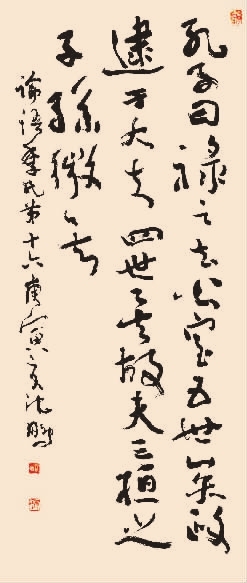 孔子曰禄之去公室五世矣政
逮於大夫四世矣故夫三桓之
子孫微矣
論語季氏第十六庚寅之夏沈鵬